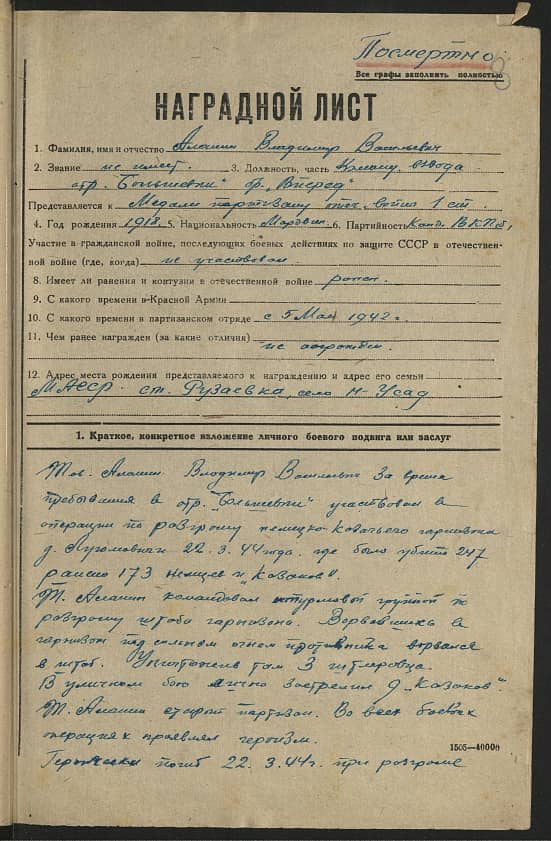 Посмертно
8
Все графы заполнить полностью
НАГРАДНОЙ ЛИСТ
1. Фамилия, имя и отчество Аламин Владимир Васильевич
2. Звание не имеет. 3. Должность, часть Команд. взвода
отр. "Большевик" бр. "Вперед"
Представляется к Медали партизану отеч. войны 1 ст.
4. Год рождения 1918 5. Национальность Мордвин 6. Партийность Канд. ВКПб,
Участие в гражданской войне, последующих боевых действиях по защите СССР в отечествен-
ной войне (где, когда) не участвовал
8. Имеет ли ранения и контузии в отечественной войне ранен
9. С какого времени в Красной Армии
10. С какого времени в партизанском отряде с 5 Мая 1942 г.
11. Чем ранее награжден (за какие отличия) не награжден
12. Адрес места рождения представляемого к награждению и адрес его семьи
МАССР ст. Рузаевка, село Н-Усад
1. Краткое, конкретное изложение личного боевого подвига или заслуг
Тов. Аламин Владимир Васильевич за время
пребывания в отр. "Большевик" участвовал в
операции по разгрому немецко-казачьего гарнизона
д. Налибоки 22.3.44 года. где было убито 247
ранено 173 немцев и "казаков".
Т. Аламин командовал штурмовой группой по
разгрому штаба гарнизона. Ворвавшись в
гарнизон под сильным огнем противника ворвался
в штаб. Уничтожив там 3 гитлеровца.
В уличном бою лично застрелил 9 "казаков".
Т. Аламин старый партизан. Во всех боевых
операциях проявлял героизм.
1505—40000
Героически погиб 22.3.44г. при разгроме